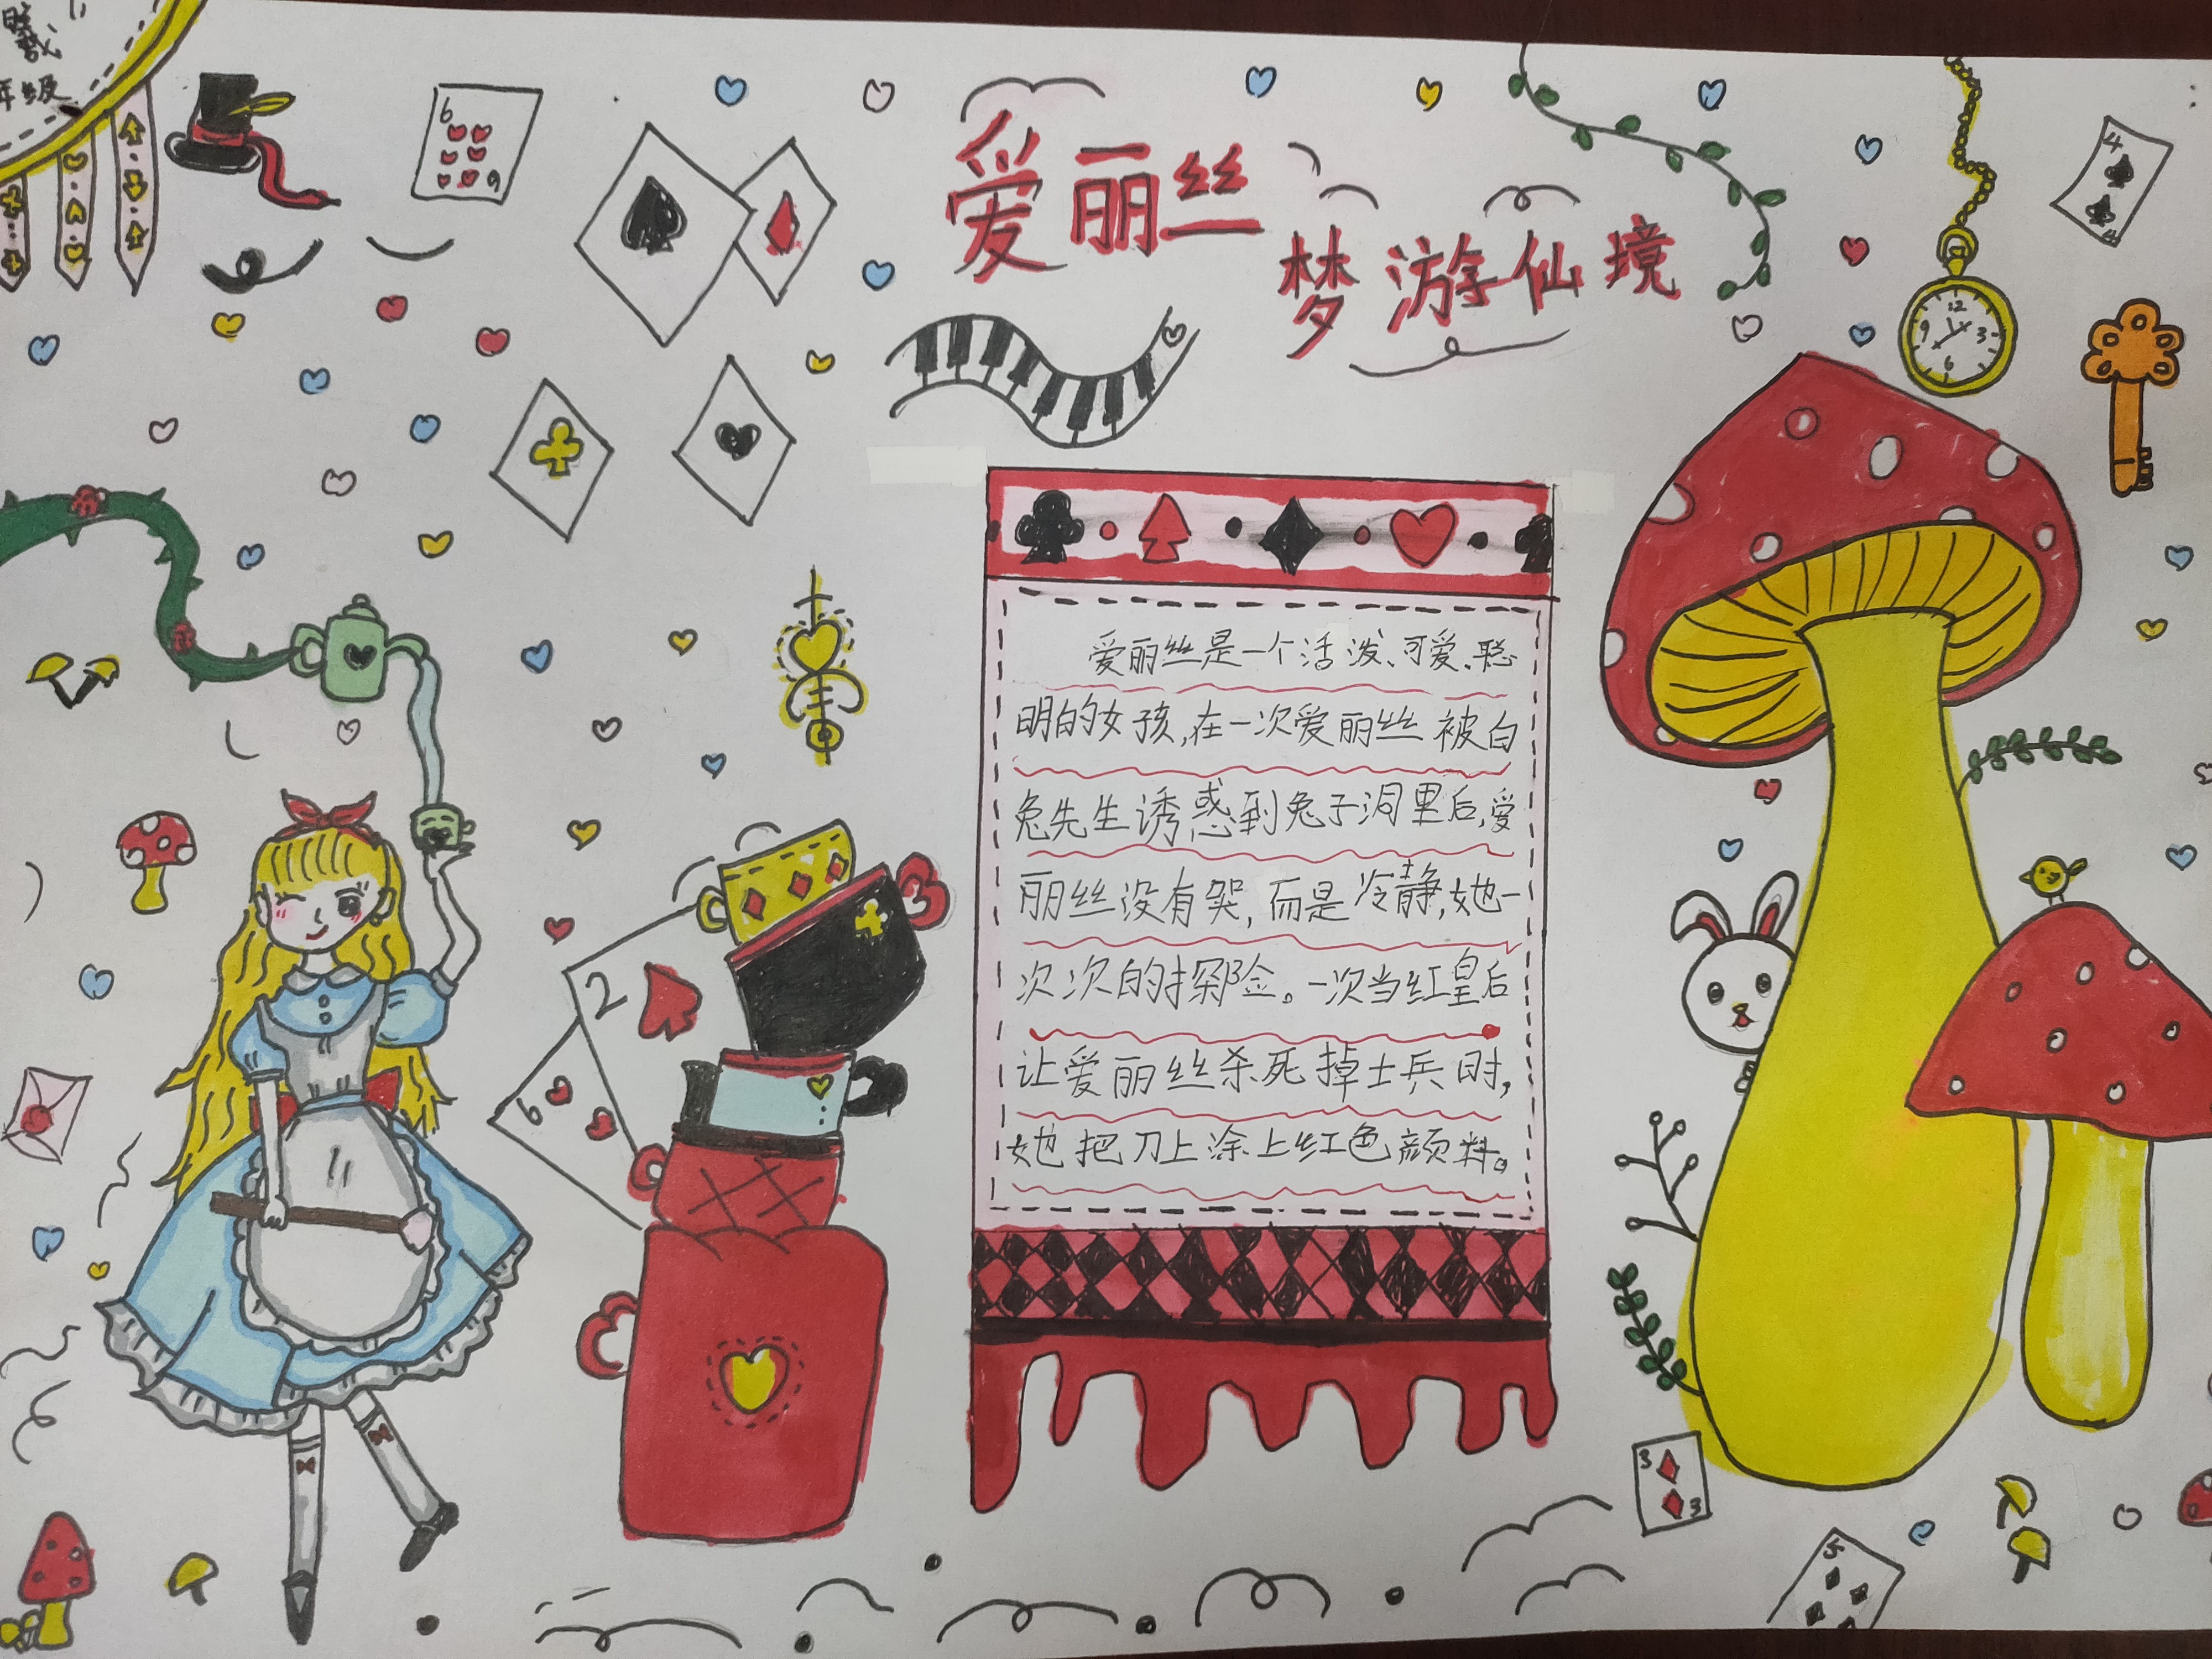 年级
6
9
爱丽丝
梦游仙境
4
4
12
3
6
9
爱丽丝是一个活泼、可爱、聪
明的女孩,在一次爱丽丝被白
兔先生诱惑到兔子洞里后,爱
丽丝没有哭,而是冷静,她一
次次的探险。一次当红皇后
让爱丽丝杀死掉士兵时,
她把刀上涂上红色颜料。
2
6
3
3
5